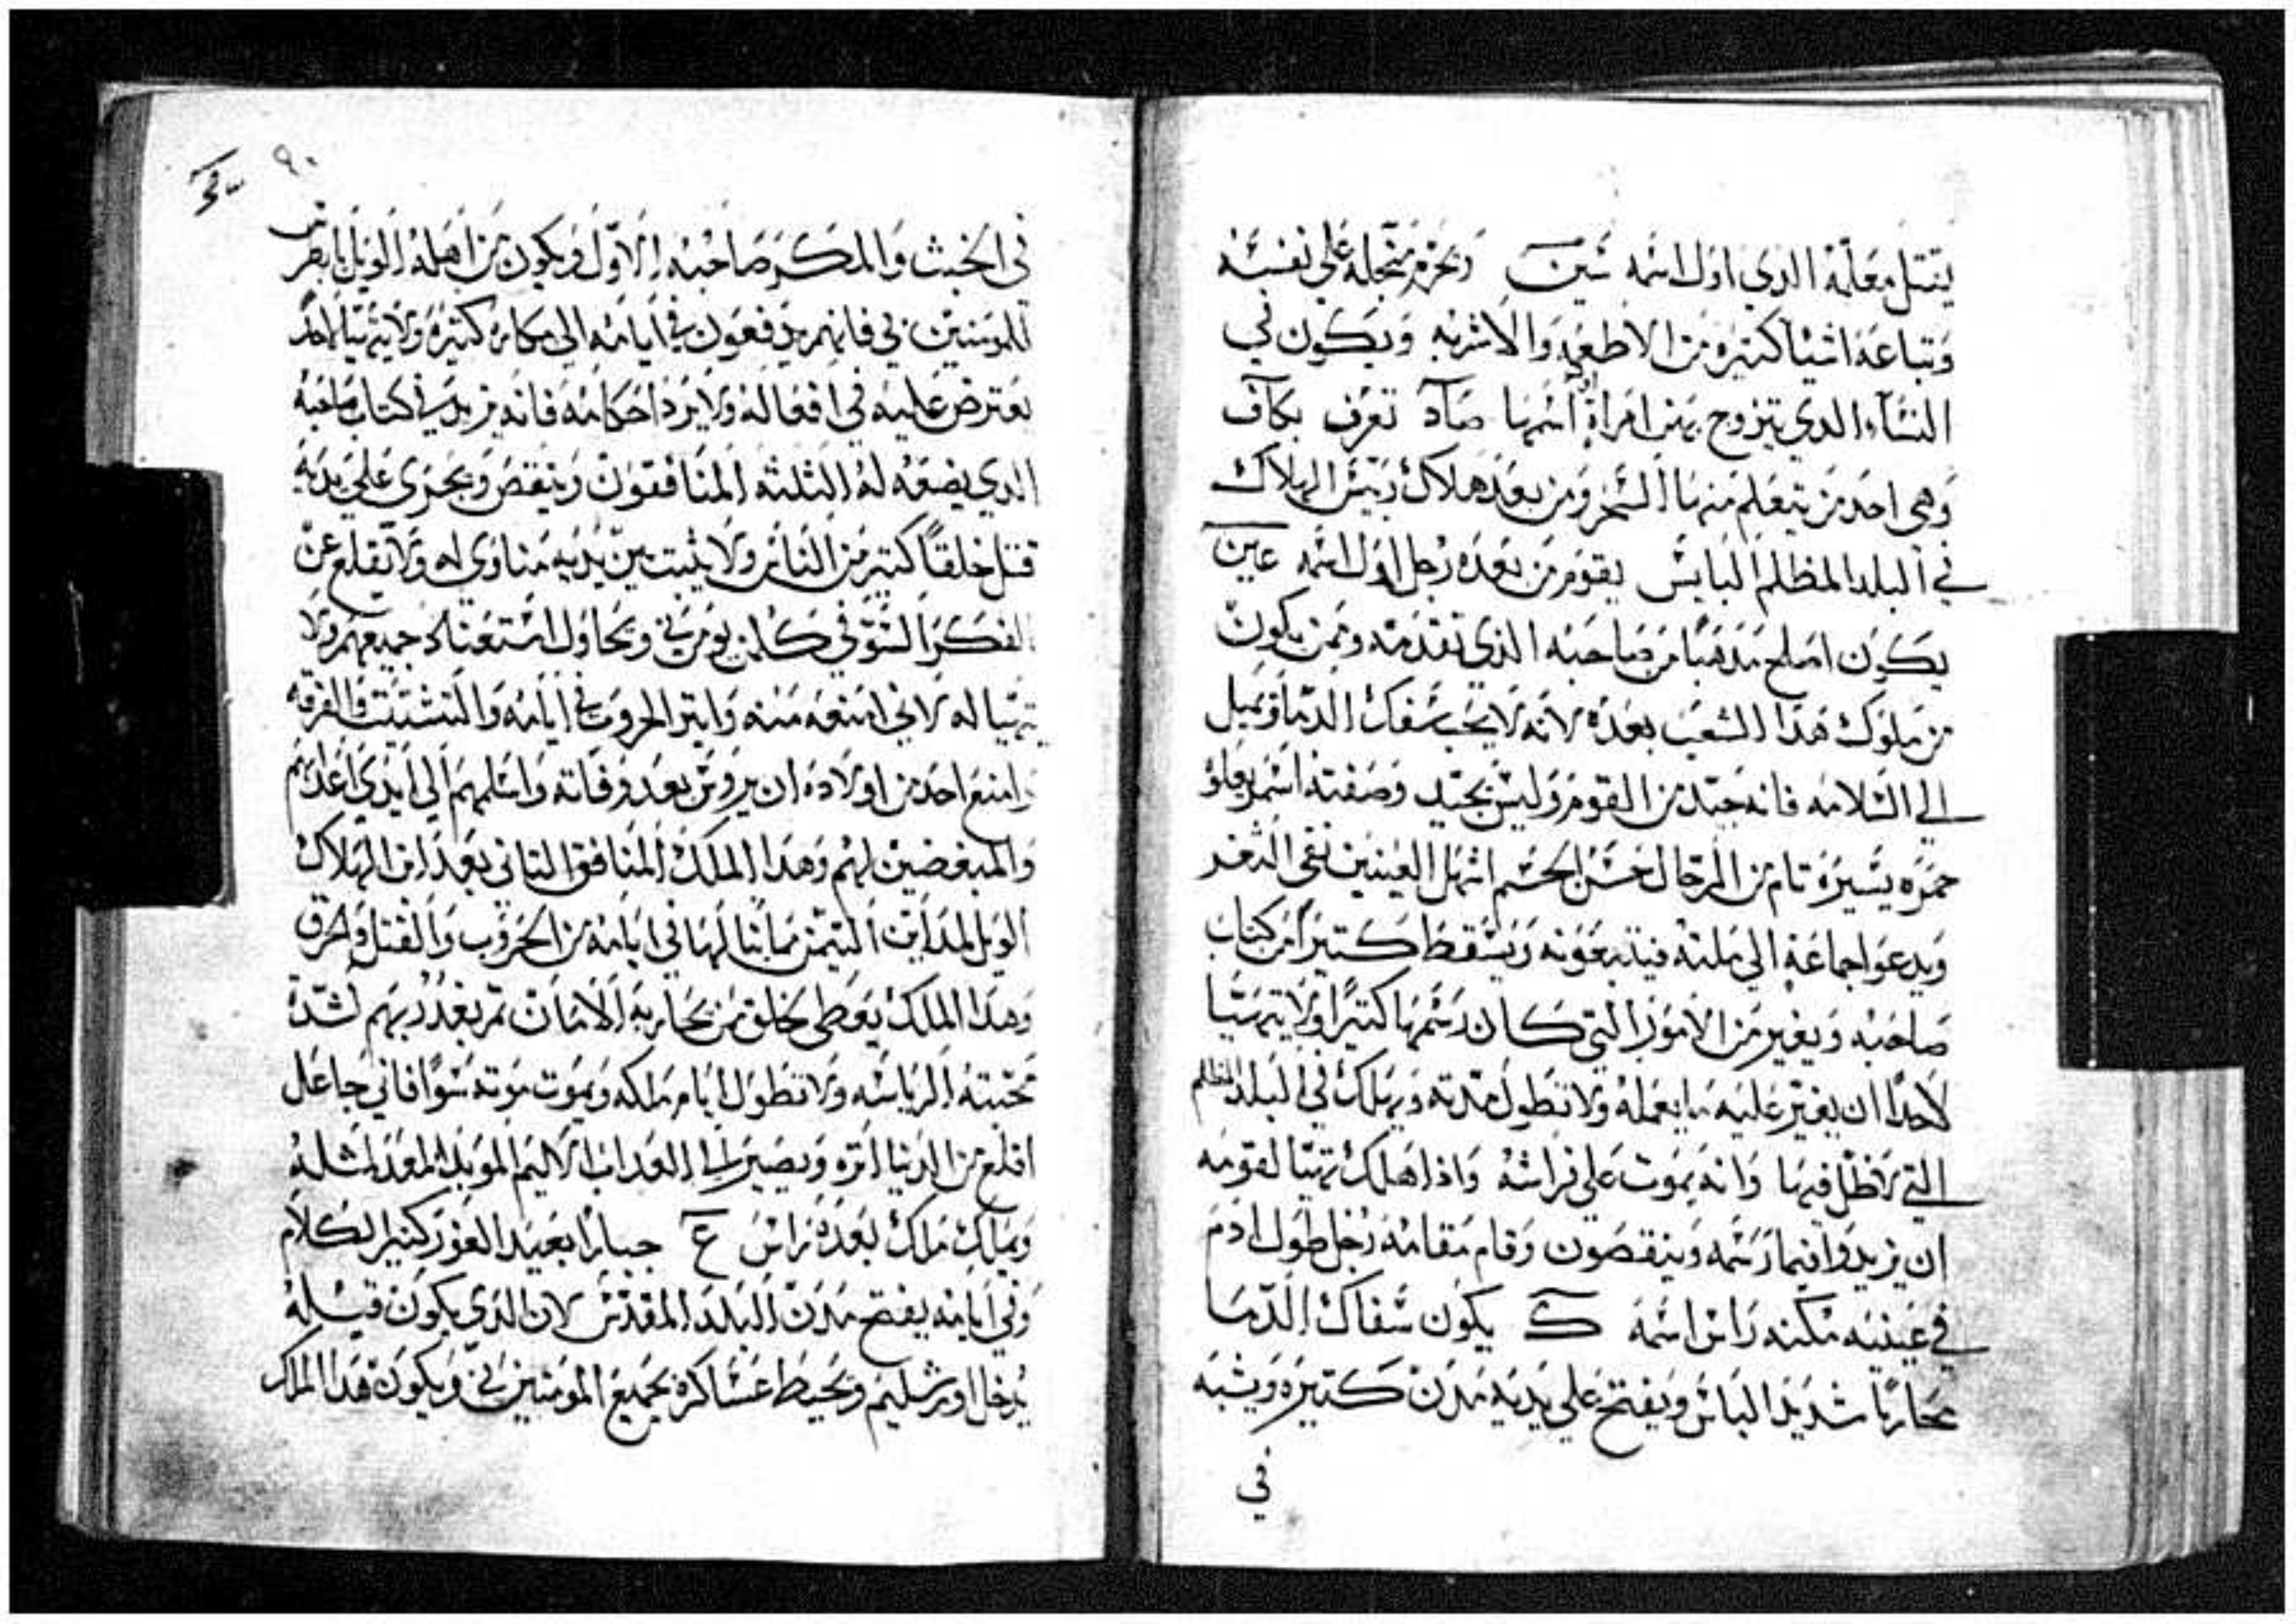 يقتل معلمه الدي اول اسمه شين ويحرم منجله علي نفسه
وتباعه اشيا كتيره من الاطعمه والاشربه ويكون في
النساء الدي يتزوج بهن امراة اول اسمها صاد تعرف بكاف
وهي احد من يتعلم منها السحر ومن بعد هلاك ربيس الهلاك
في البلد المظلم اليابس يقوم من بعده رجل اول اسمه عين
يكون اصلح مدهبا من صاحبه الذي تقدمه وممن يكون
من ملوك هدا الشعب بعده لانه لا يحب سفك الدما ويميل
الي السلامه فانه جيد من القوم وليس بجيد وصفته اسمر يعلو
حمره يسيره تام من الرجال حسن الجسم اشهل العينين نقي الثغر
ويدعوا جماعة الي ملته فيتبعونه ويسقط كتيرا من كتاب
صاحبه ويغير من الامور التي كان رسمها كتيرا ولا يتهيا
لاحدا ان يغير عليه ما يعمله ولا تطول مدته ويهلك في البلد المظلم
التي فيها وانه يموت علي فراشه واذا هلك تهيا لقومه
ان يزيدوا فيما رسمه وينقصون وقام مقامه رجل طول ادم
في عينيه مكنه راس اسمه ك يكون سفاك الدما
محاربا شديد الباس ويفتح علي يديه مدن كتيره ويشبه
في
٩٠
في الخبث والمكر صاحبه الاول ويكون من اهله الويل
للمومنين بي فانهم يدفعون في ايامه الي مكاره كتيره ولا يتهيا لاحد
يعترض عليه في افعاله ولا يرد احكامه فانه يزيد في كتاب صاحبه
الدي يضعه له الثلثه المنافقون وينقص ويجري علي يديه
قتل خلقا كتير من الناس ولا يثبت بين يديه مناوي له ولا يقلع عن
الفكر السو في كلمن يومن بي ويحاول جميعهم ولا
يتهيا له لاني امنعه منه واتير الحروب في ايامه والتشتيت والفرقه
وامنع احد من اولاده ان يروس بعد وفاته واسلمهم الي ايدي اعدايهم
والمبغضين لهم وهدا الملك المنافق التاني بعد ابن الهلاك
الويل لمداين اليمن مما ينالها في ايامه من الحروب والقتل والحرق
وهدا الملك يعطي لخلق من يحاربه الامان تم يغدر بهم لشدة
محبته الرياسه ولا تطول ايام ملكه ويموت موته سوا فاني جاعل
اقلع من الدنيا اتره ويصير الي العداب الاليم الموبد المعد لمثله
ويملك ملك بعده راس ع جبارا بعيد الغور كتير الكلام
وفي ايامه يفتح مدن البلد المقدس لان الدي يكون قبله
يدخل اورشليم وتحيط عساكره بجميع المومنين بي ويكون هدا الملك